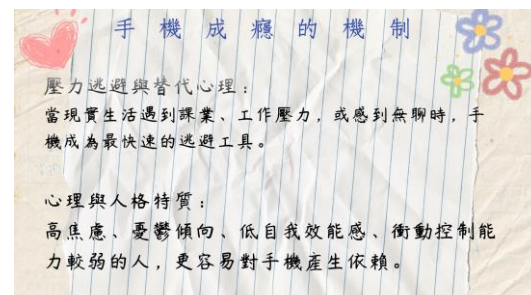 手機成癮的機制
壓力逃避與替代心理：
當現實生活遇到課業、工作壓力，或感到無聊時，手
機成為最快速的逃避工具。
心理與人格特質：
高焦慮、憂鬱傾向、低自我效能感、衝動控制能
力較弱的人，更容易對手機產生依賴。